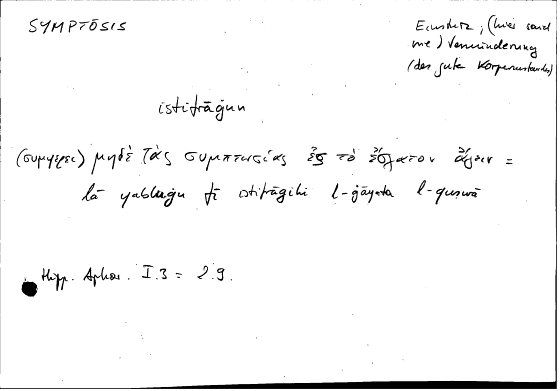 SYMPTŌSIS
Einsturz, (hier
me) Verminderung
(des guten Körperzustandes)
istifrāġun
(συμφέρει) μηδὲ τὰς συμπτωσίας ἐς τὸ ἔσχατον ἄγειν =
lā yabluġu fī istifrāġihi l-ġāyata l-quṣwā
Hipp. Aphor. I.3 = 2.9.